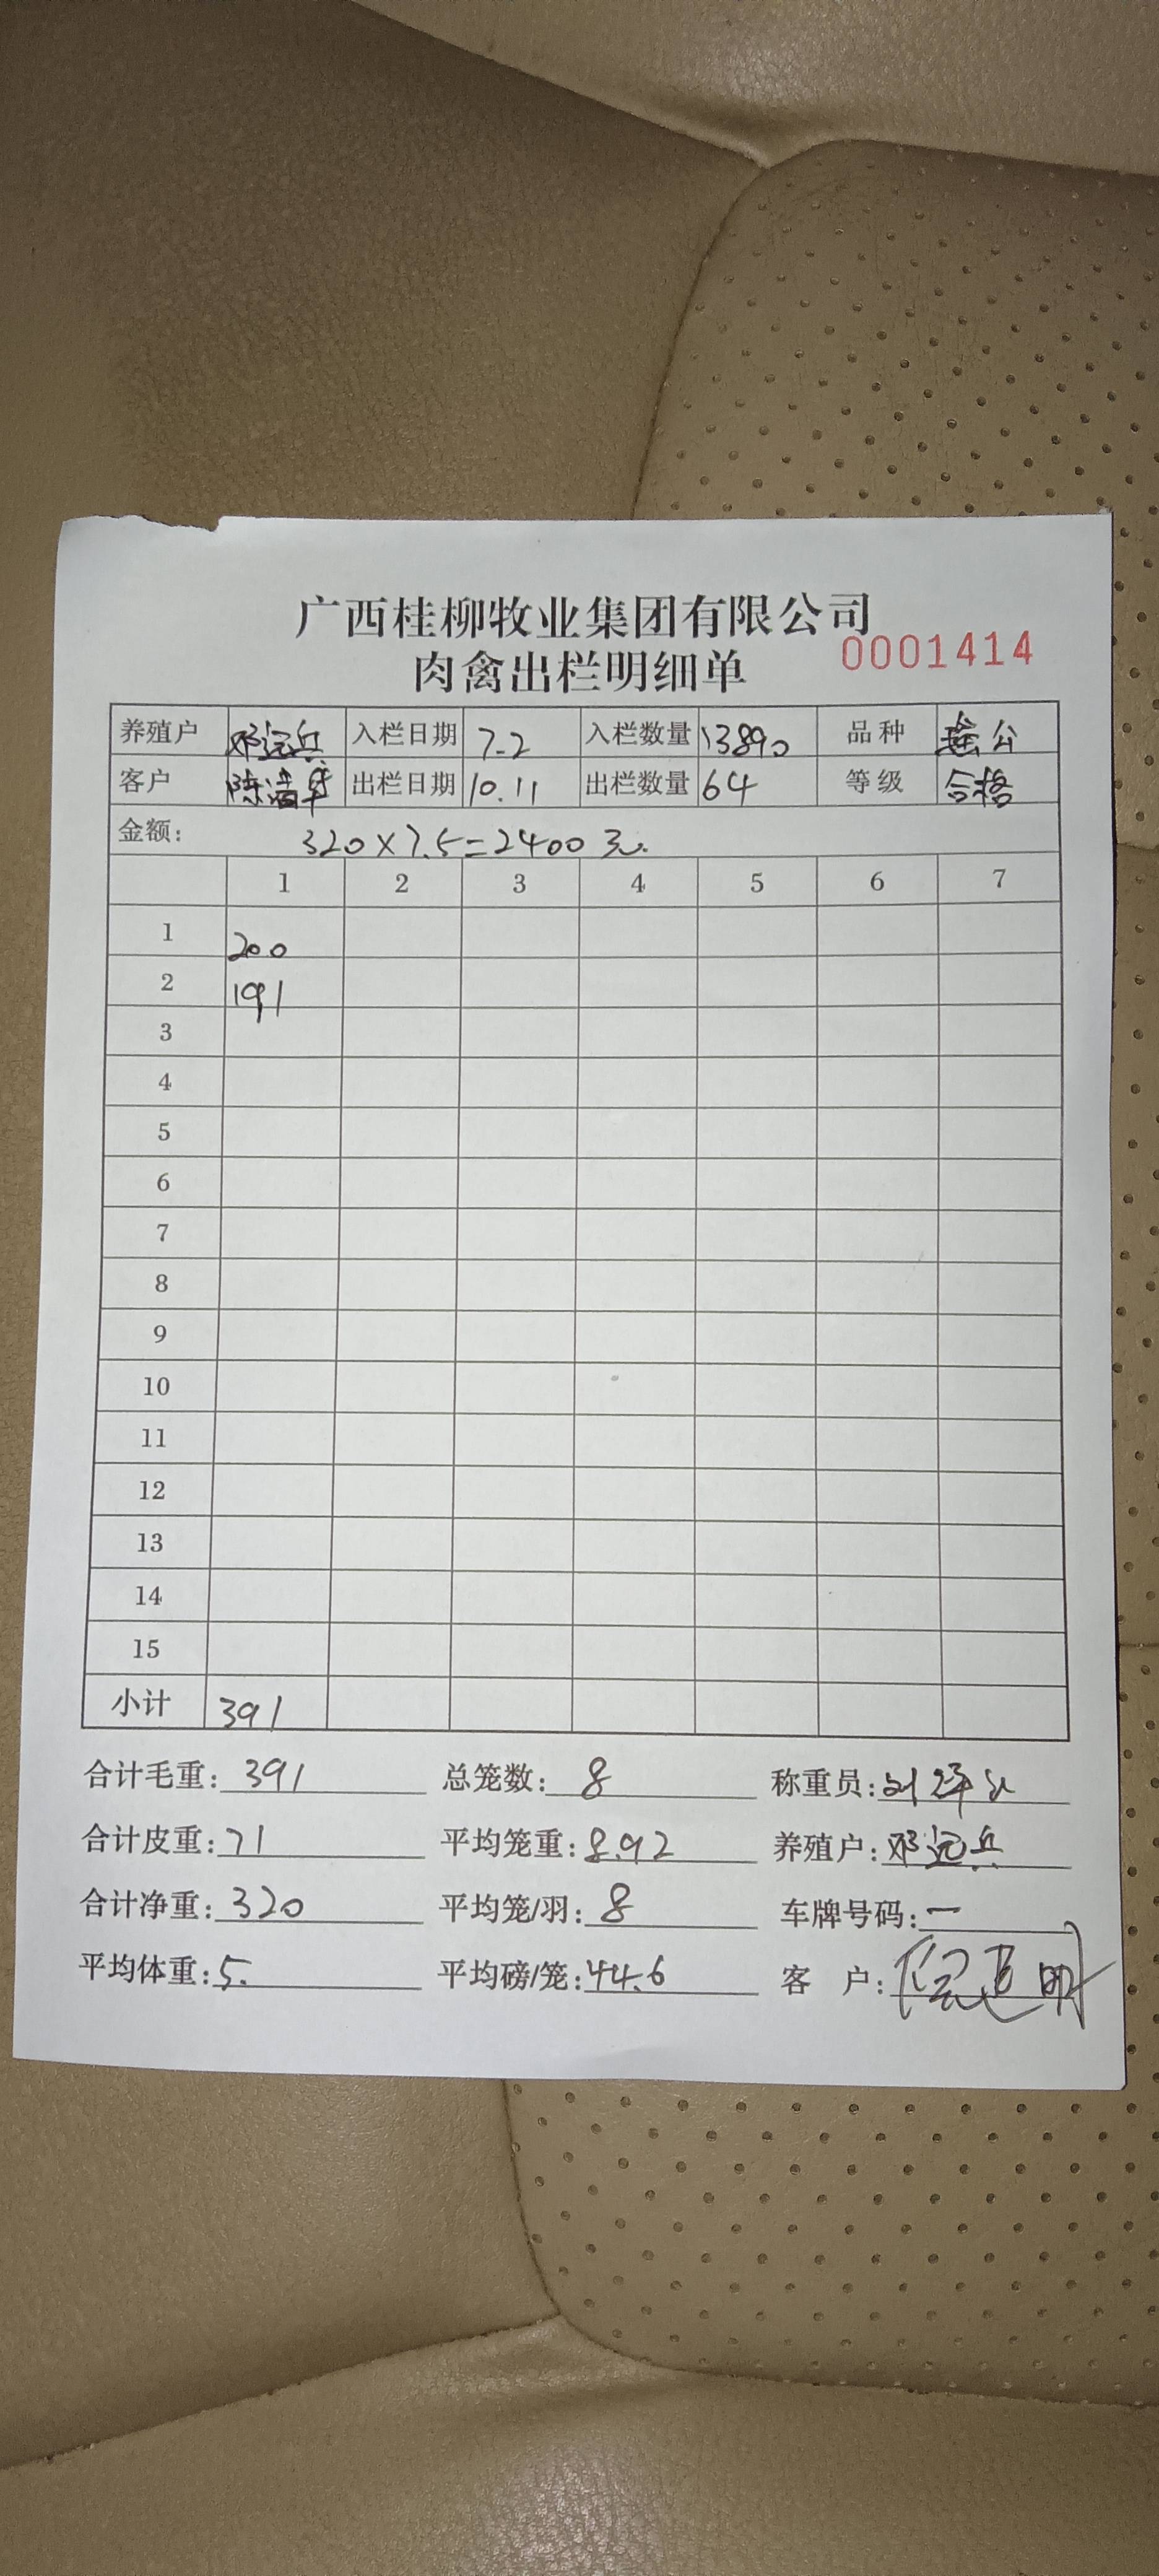 广西桂柳牧业集团有限公司
肉禽出栏明细单 0001414
养殖户 邓远兵 入栏日期 7.2 入栏数量 13890 品种 公
客户 陈清华 出栏日期 10.11 出栏数量 64 等级 合格
金额: 320×7.5=2400元.
1 2 3 4 5 6 7
1 200
2 191
3
4
5
6
7
8
9
10
11
12
13
14
15
小计 391
合计毛重: 391 总笼数: 8 称重员: 刘
合计皮重: 71 平均笼重: 8.92 养殖户: 邓远兵
合计净重: 320 平均笼/羽: 8 车牌号码: 一
平均体重: 5. 平均磅/笼: 44.6 客 户: 明